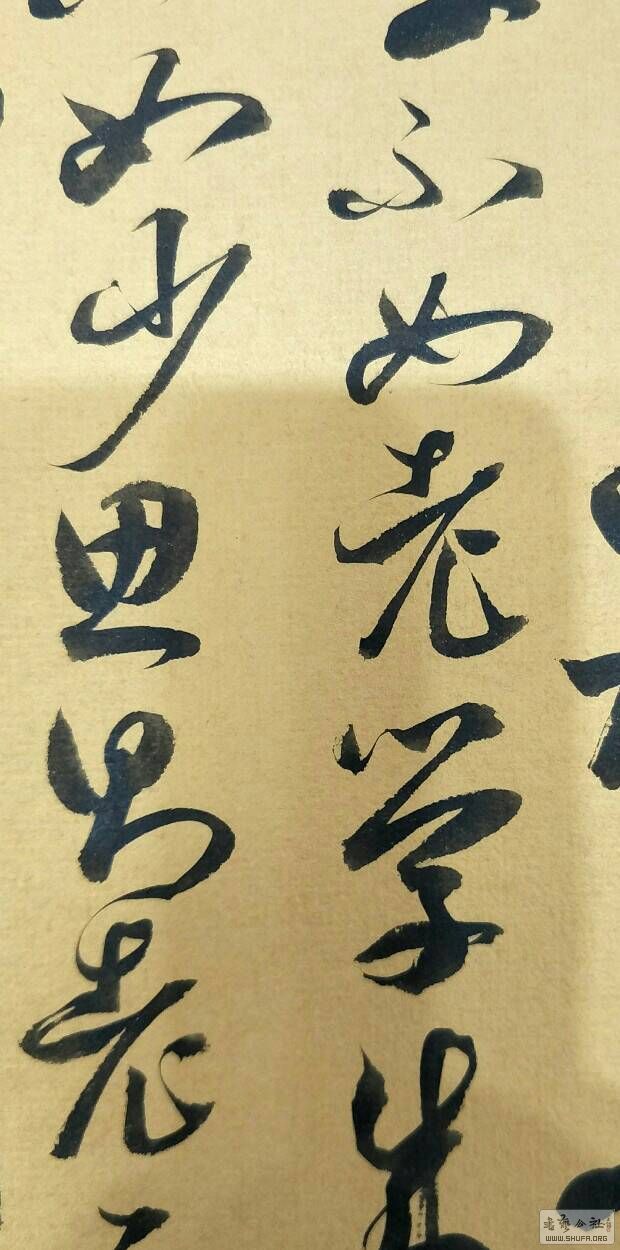 不如老学成
如少思则老
書藝公社
WWW.SHUFA.ORG